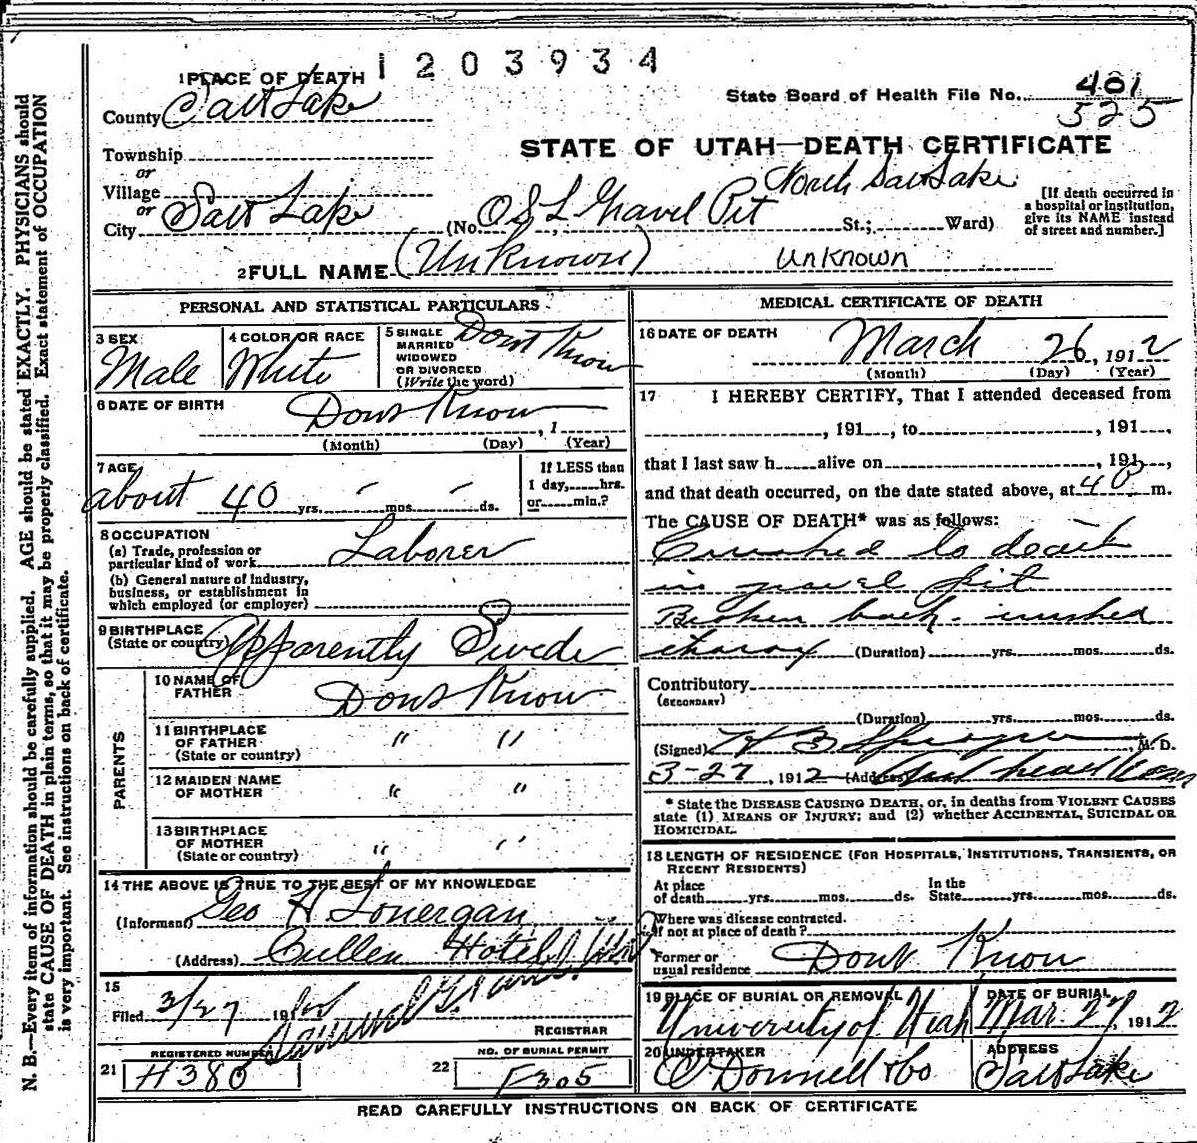 1203934
1 PLACE OF DEATH
County Salt Lake
State Board of Health File No. 401
525
Township
or
Village
or
City Salt Lake
STATE OF UTAH—DEATH CERTIFICATE
North Salt Lake
(No. O S L Gravel Pit St.; Ward)
[If death occurred in a hospital or institution, give its NAME instead of street and number.]
2 FULL NAME (Unknown) Unknown
PERSONAL AND STATISTICAL PARTICULARS
3 SEX
Male
4 COLOR OR RACE
White
5 SINGLE
MARRIED
WIDOWED
OR DIVORCED
(Write the word)
Dont Know
6 DATE OF BIRTH
Dont Know , 1
(Month) (Day) (Year)
7 AGE
about 40 yrs. - mos. - ds.
If LESS than
1 day, hrs.
or min.?
8 OCCUPATION
(a) Trade, profession or
particular kind of work Laborer
(b) General nature of industry,
business, or establishment in
which employed (or employer)
9 BIRTHPLACE
(State or country) Apparently Swede
PARENTS
10 NAME OF
FATHER Dont Know
11 BIRTHPLACE
OF FATHER " "
(State or country)
12 MAIDEN NAME
OF MOTHER " "
13 BIRTHPLACE
OF MOTHER " "
(State or country)
14 THE ABOVE IS TRUE TO THE BEST OF MY KNOWLEDGE
(Informant) Geo H Lonergan
(Address) Cullen Hotel
15
Filed 3/27 191
REGISTRAR
REGISTERED NUMBER
21 H380
NO. OF BURIAL PERMIT
22 F305
MEDICAL CERTIFICATE OF DEATH
16 DATE OF DEATH
March 26, 1912
(Month) (Day) (Year)
17 I HEREBY CERTIFY, That I attended deceased from
, 191 , to , 191 ,
that I last saw h alive on , 191 ,
and that death occurred, on the date stated above, at 4 P m.
The CAUSE OF DEATH* was as follows:
Crushed to death
in gravel pit
Broken back. crushed
(Duration) yrs. mos. ds.
Contributory
(SECONDARY)
(Duration) yrs. mos. ds.
(Signed) , M. D.
3-27, 1912 (Address)
* State the DISEASE CAUSING DEATH, or, in deaths from VIOLENT CAUSES
state (1) MEANS OF INJURY; and (2) whether ACCIDENTAL, SUICIDAL OR
HOMICIDAL.
18 LENGTH OF RESIDENCE (FOR HOSPITALS, INSTITUTIONS, TRANSIENTS, OR
RECENT RESIDENTS)
At place
of death yrs. mos. ds.
In the
State yrs. mos. ds.
Where was disease contracted.
if not at place of death?
Former or
usual residence Dont Know
19 PLACE OF BURIAL OR REMOVAL
University of Utah
DATE OF BURIAL
Mar. 27, 1912
20 UNDERTAKER
O'Donnell & Co
ADDRESS
Salt Lake
READ CAREFULLY INSTRUCTIONS ON BACK OF CERTIFICATE
N. B.—Every item of information should be carefully supplied. AGE should be stated EXACTLY. PHYSICIANS should
state CAUSE OF DEATH in plain terms, so that it may be properly classified. Exact statement of OCCUPATION
is very important. See instructions on back of certificate.